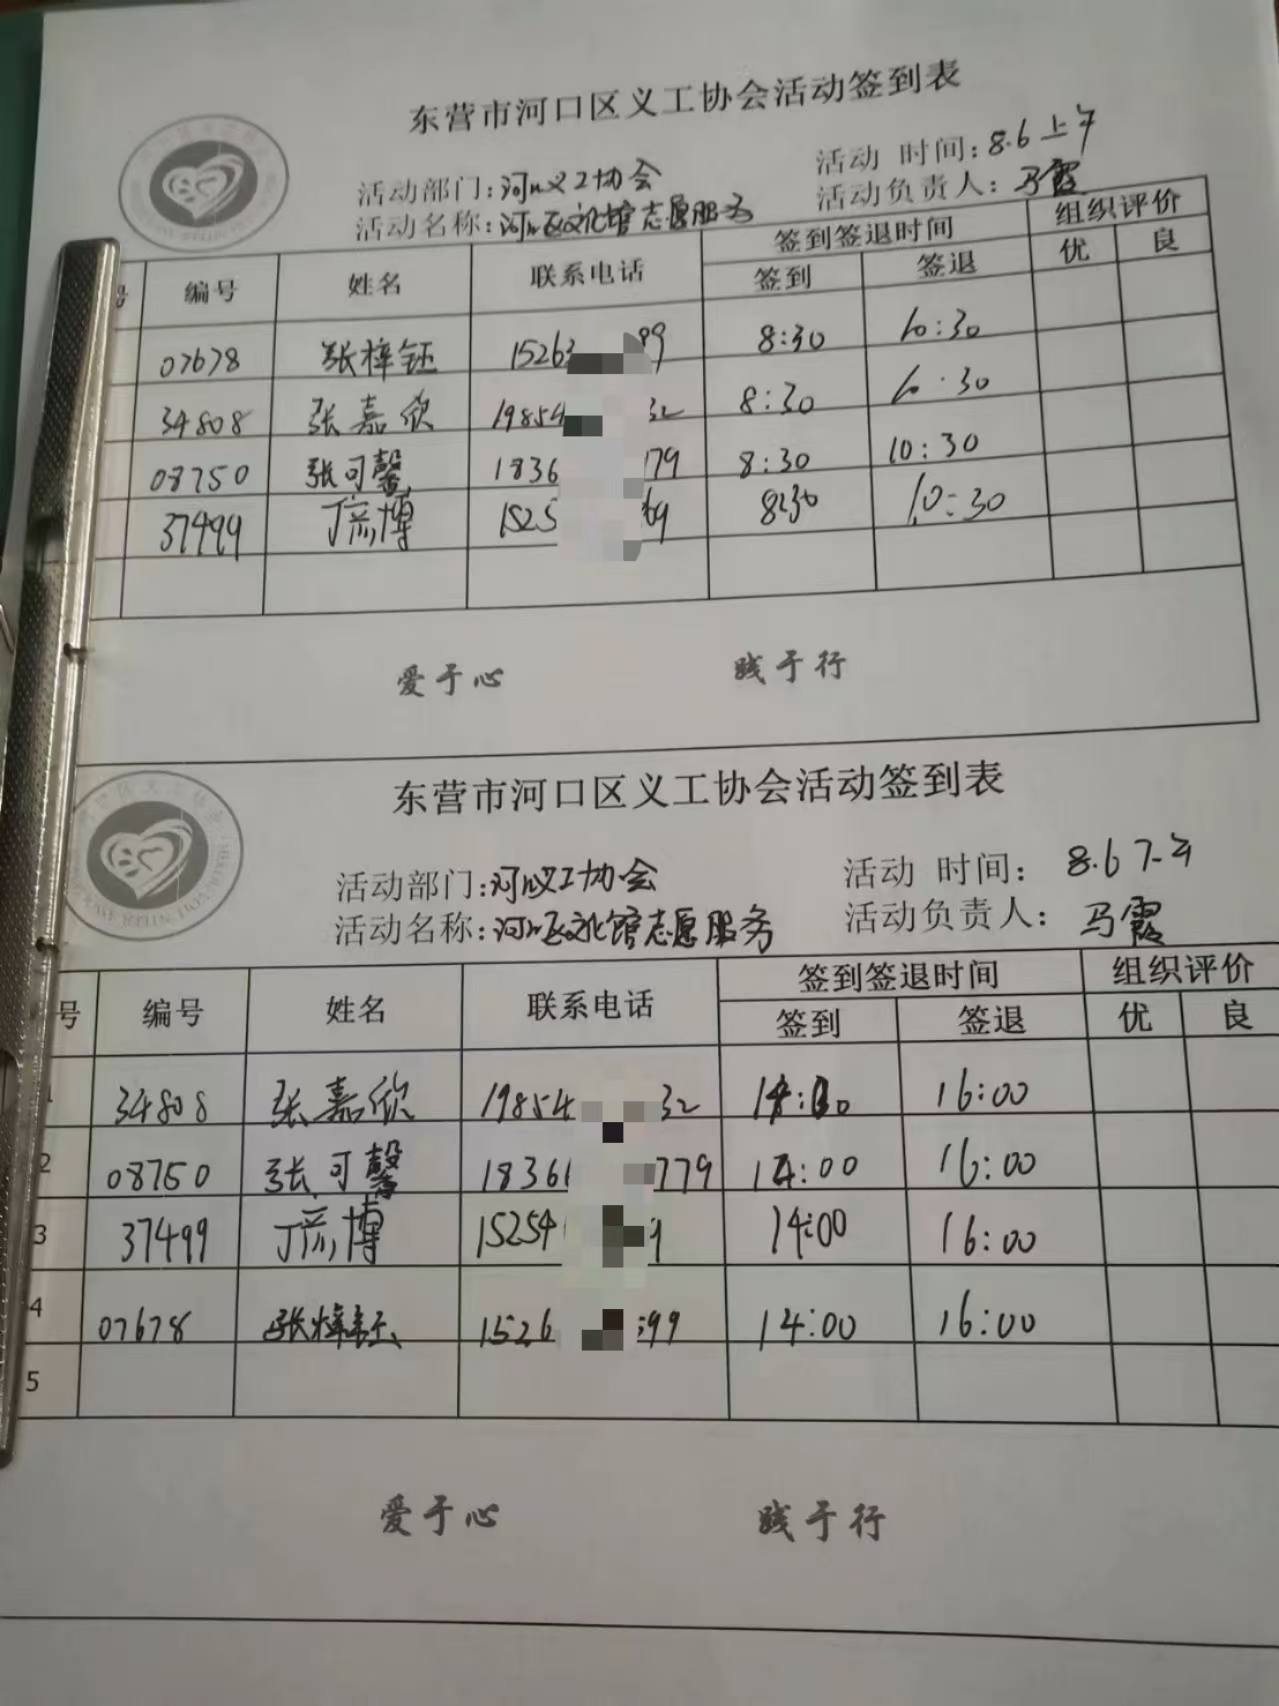 东营市河口区义工协会活动签到表
活动部门：河口义工协会 活动 时间：8.6 上午
活动名称：河口区文化馆志愿服务 活动负责人：马霞
号 编号 姓名 联系电话 签到签退时间 组织评价
签到 签退 优 良
07678 张梓钰 15263 99 8:30 10:30
34808 张嘉欣 19854 32 8:30 10:30
08750 张可馨 1836 779 8:30 10:30
37499 丁 博 1525 69 8:30 10:30
爱于心 践于行
东营市河口区义工协会活动签到表
活动部门：河口义工协会 活动 时间： 8.6 下午
活动名称：河口区文化馆志愿服务 活动负责人： 马霞
号 编号 姓名 联系电话 签到签退时间 组织评价
签到 签退 优 良
1 34808 张嘉欣 19854 32 16:00
2 08750 张可馨 1836 779 14:00 16:00
3 37499 丁 博 15254 9 14:00 16:00
4 07678 张梓钰 1526 399 14:00 16:00
5
爱于心 践于行